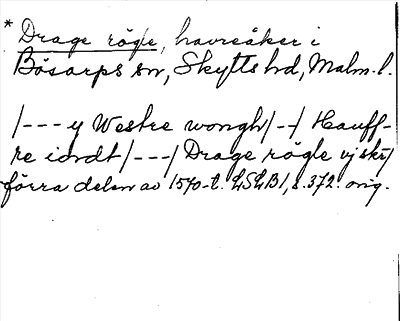 * Drage rögle, havreåker i
Bösarps sn, Skytts hd, Malm. l.
/--- y Westre wongh/--/ Hauff-
re iordt /---/ Drage rögle vj skr/
förra delen av 1570-t. LSLB1, s. 372. orig.